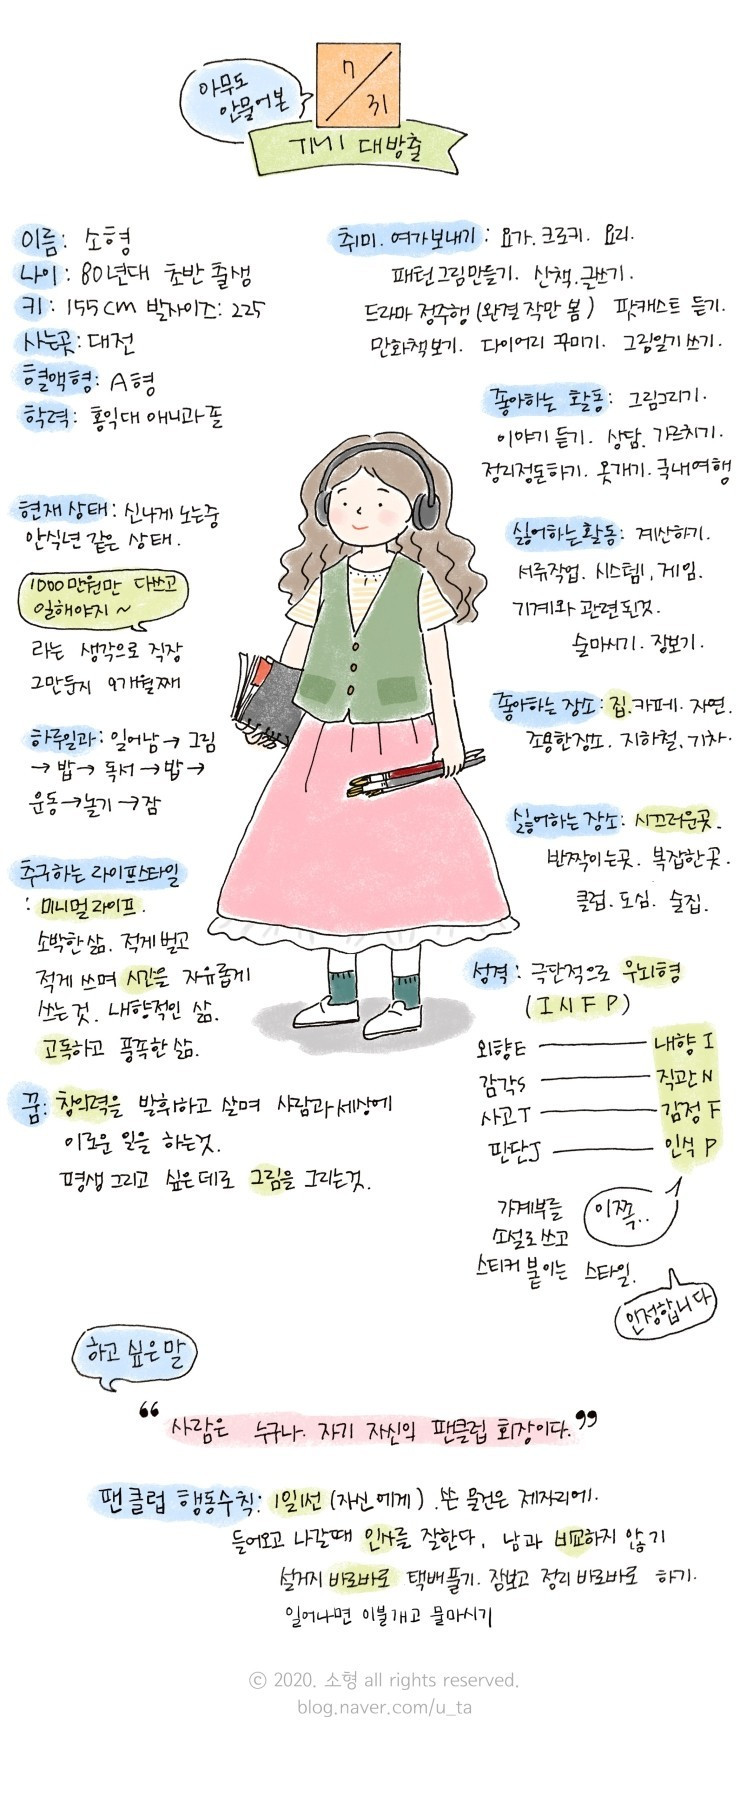 아무도
안물어본
ㄱ/ㅋㅣ
TMI 대방출
이름: 소형
나이: 80년대 초반 출생
키: 155cm 발사이즈: 225
사는곳: 대전
혈액형: A형
학력: 홍익대 애니과 졸
취미. 여가보내기: 요가. 크로키. 요리.
패턴그림만들기. 산책. 글쓰기.
드라마 정주행 (완결작만 봄) 팟캐스트 듣기.
만화책보기. 다이어리 꾸미기. 그림일기 쓰기.
좋아하는 활동: 그림그리기.
이야기 듣기. 상담. 가르치기.
정리정돈하기. 옷개기. 국내여행
현재 상태: 신나게 노는중
안식년 같은 상태.
1000만원만 다쓰고
일해야지~
라는 생각으로 직장
그만둔지 9개월째
싫어하는활동: 계산하기.
서류작업. 시스템, 게임.
기계와 관련된것.
술마시기. 장보기.
하루일과: 일어남→ 그림
→ 밥→ 독서→밥→
운동→놀기→잠
좋아하는 장소: 집. 카페. 자연.
조용한장소. 지하철. 기차.
싫어하는 장소: 시끄러운곳.
반짝이는곳. 복잡한곳.
클럽. 도심. 술집.
추구하는 라이프스타일
: 미니멀라이프.
소박한삶. 적게벌고
적게 쓰며 시간을 자유롭게
쓰는 것. 내향적인 삶.
고독하고 풍족한 삶.
꿈: 창의력을 발휘하고 살며 사람과세상에
이로운 일을 하는것.
평생 그리고 싶은데로 그림을 그리는것.
성격: 극단적으로 우뇌형
(INFP)
외향E 내향 I
감각S 직관 N
사고T 감정 F
판단J 인식 P
이쪽..
가계부를
소설로쓰고
스티커 붙이는 스타일.
인정합니다
하고 싶은말
“사람은 누구나. 자기 자신의 팬클럽 회장이다.”
팬클럽 행동수칙: 1일1선 (자신에게). 쓴 물건은 제자리에.
들어오고 나갈때 인사를 잘한다. 남과 비교하지 않기
설거지 바로바로 택배풀기. 장보고 정리 바로바로 하기.
일어나면 이불개고 물마시기
© 2020. 소형 all rights reserved.
blog.naver.com/u_ta